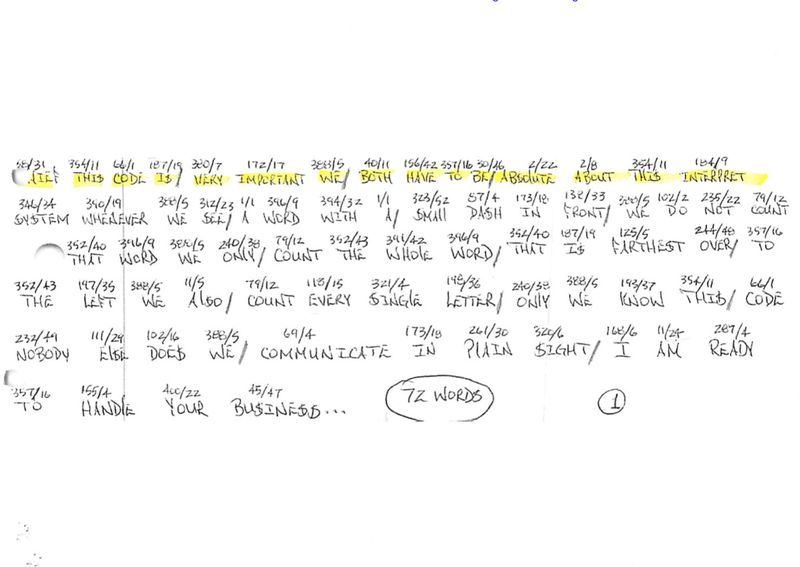 354/11 66/1 187/19 380/7 172/17 388/5 40/11 156/42 357/16 30/26 2/22 2/8 354/11 184/9
THIS CODE IS/ VERY IMPORTANT WE/ BOTH HAVE TO BE/ ABSOLUTE ABOUT THIS INTERPRET
346/34 390/19 388/5 312/23 1/1 396/9 394/32 1/1 323/52 87/4 173/18 138/33 388/5 102/2 235/22 79/12
SYSTEM WHENEVER WE SEE/ A WORD WITH A/ SMALL DASH IN FRONT/ WE DO NOT COUNT
352/40 396/9 388/5 240/38 79/12 352/43 391/42 396/9 352/40 187/19 125/5 244/48 357/16
THAT WORD WE ONLY/ COUNT THE WHOLE WORD/ THAT IS FARTHEST OVER/ TO
352/43 197/35 388/5 11/5 79/12 118/15 321/4 198/36 240/38 388/5 193/37 354/11 66/1
THE LEFT WE ALSO/ COUNT EVERY SINGLE LETTER/ ONLY WE KNOW THIS/ CODE
232/49 111/29 102/16 388/5 69/4 173/18 261/30 320/6 168/6 11/24 287/4
NOBODY ELSE DOES WE/ COMMUNICATE IN PLAIN SIGHT/ I AM READY
357/16 155/4 400/22 45/47
TO HANDLE YOUR BUSINESS... 72 WORDS 1